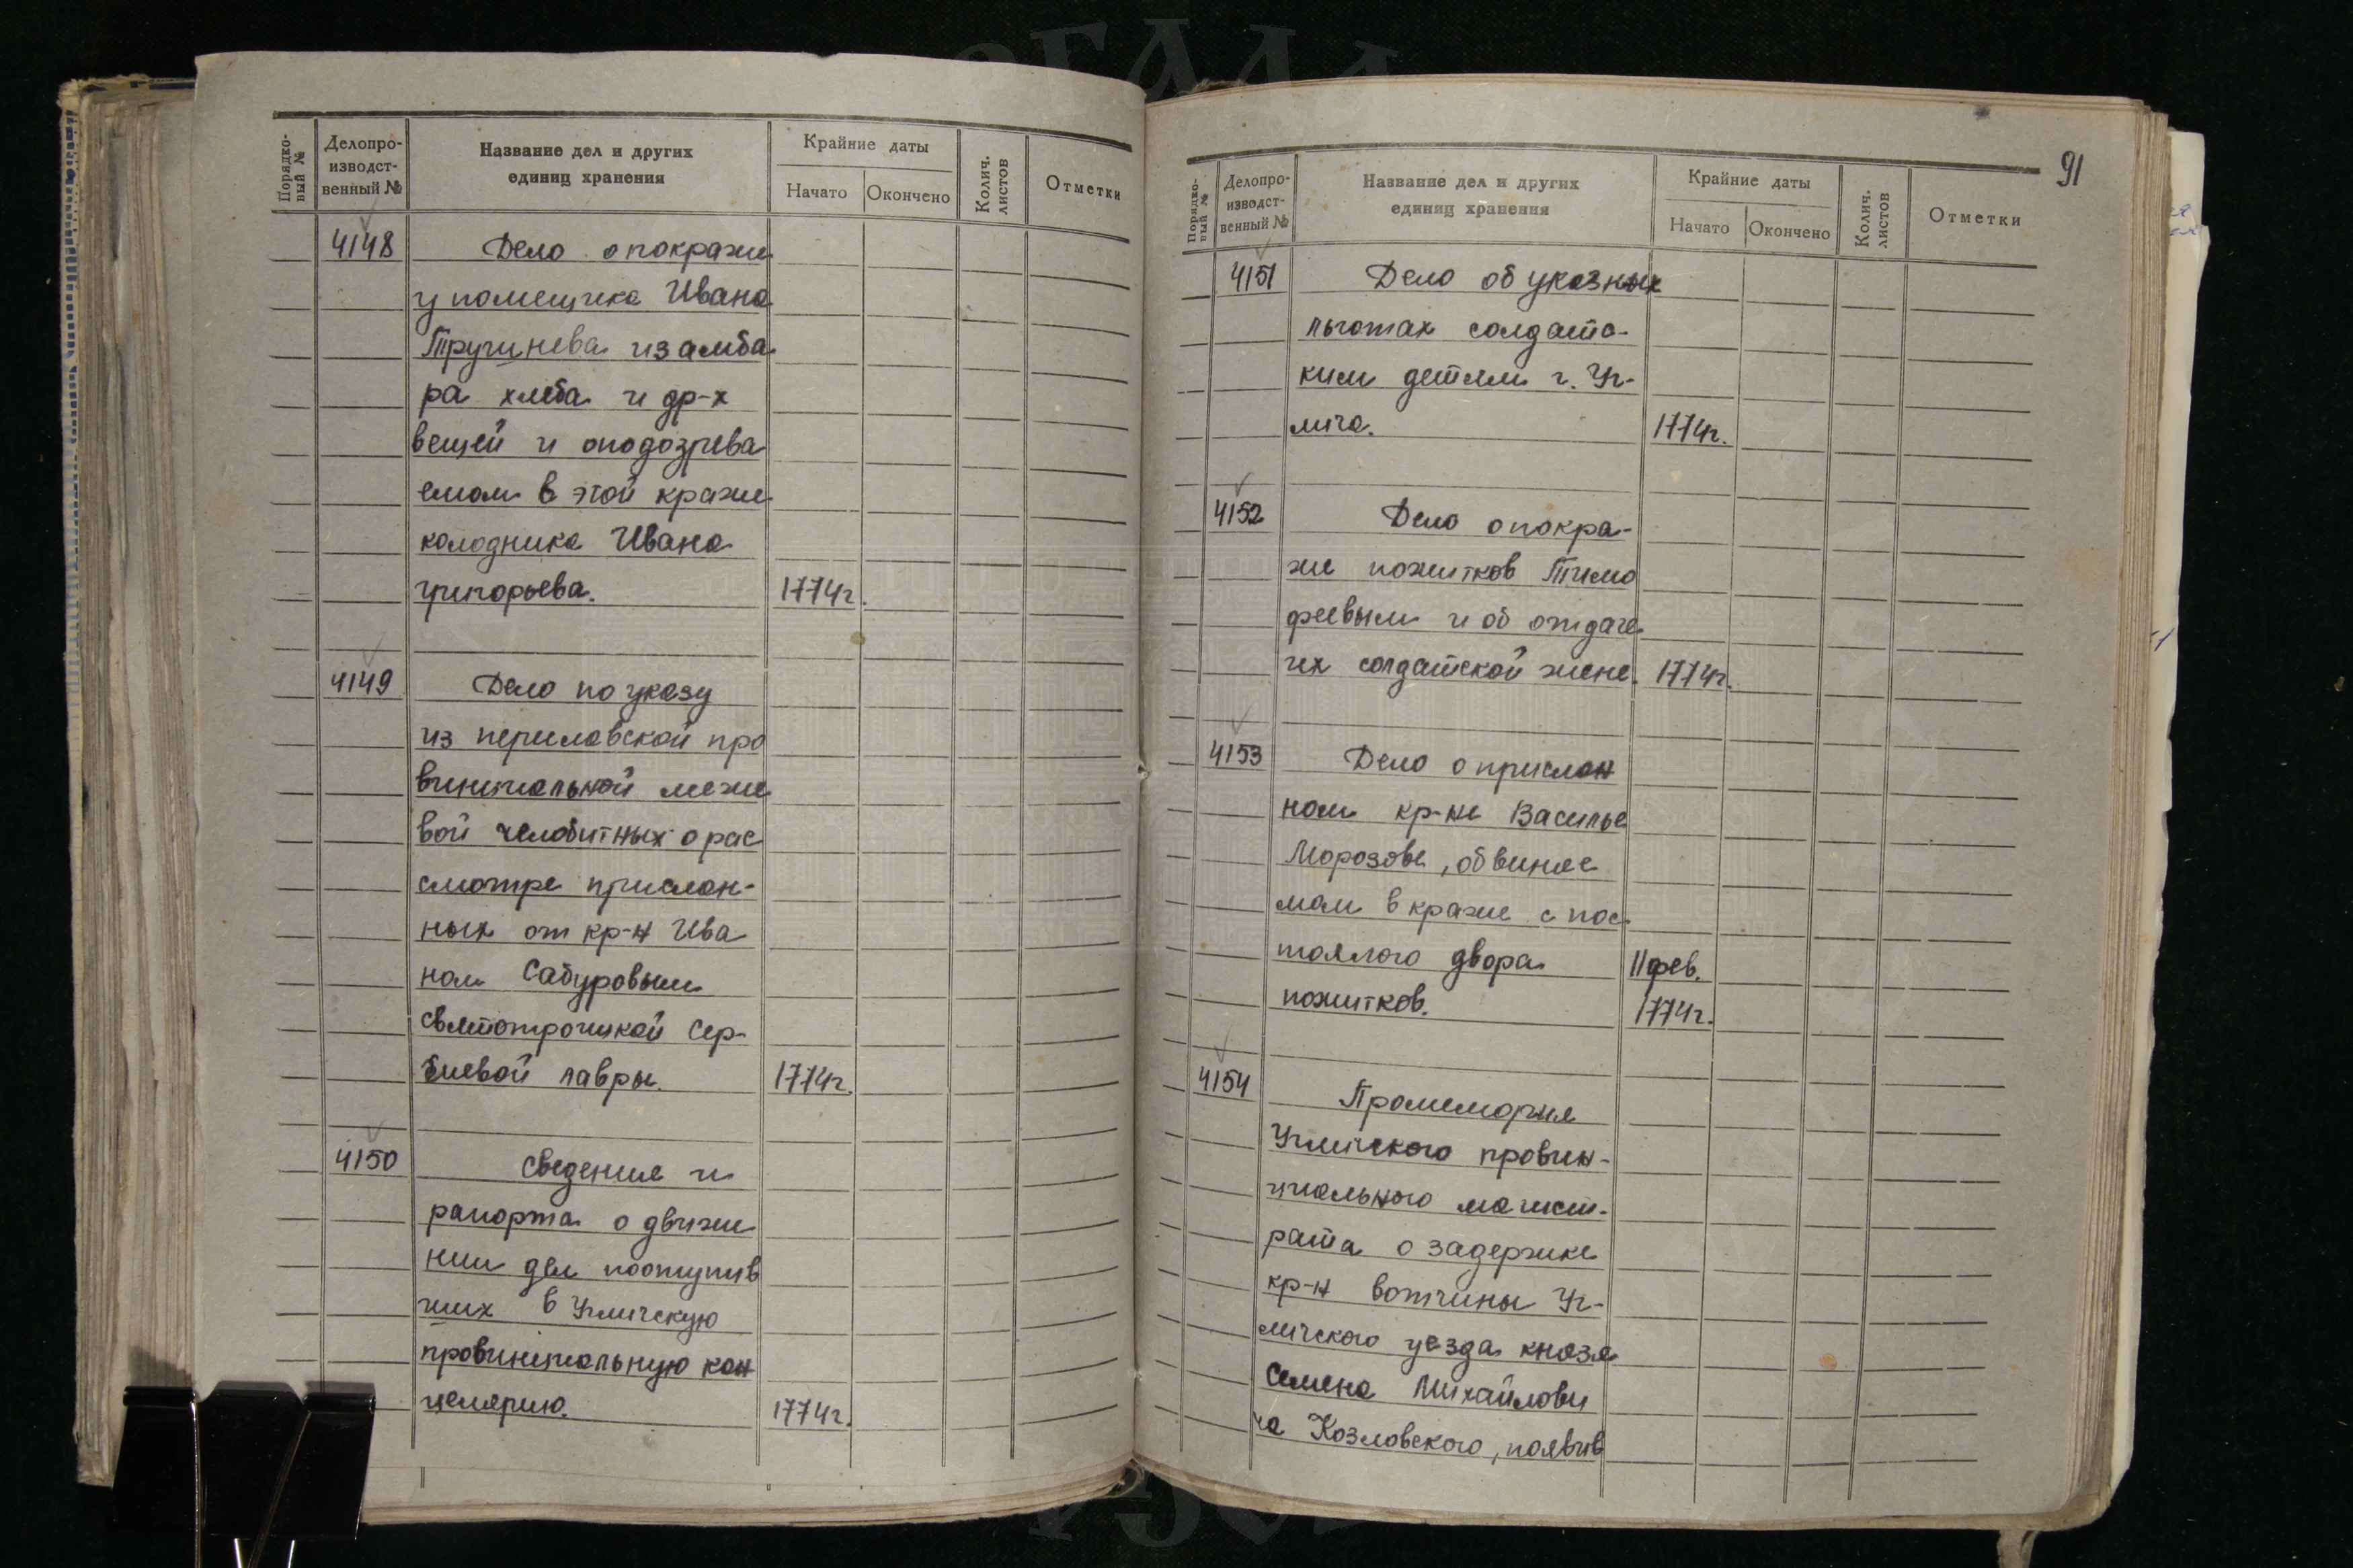 Порядко-
вый №
Делопро-
изводст-
венный №
Название дел и других
единиц хранения
Крайние даты
Начато
Окончено
Колич.
листов
Отметки
4148
Дело о покражи
у помещика Ивана
Тручинева из амба
ра хлеба и др-х
вещей и оподозрева
емом в этой кражи
колодника Ивана
григорьева.
1774г.
4149
Дело по указу
из периславской про
винциальной меже
вой челобитных о рас
смотре прислан-
ных от кр-н Ива
ном Сабуровым
святотроицкой Сер-
гиевой лавры.
1774г.
4150
Сведение и
рапорта о движе
нии дел поступив
ших в Угличскую
провинциальную кан
целярию.
1774г.
91
Порядко-
вый №
Делопро-
изводст-
венный №
Название дел и других
единиц хранения
Крайние даты
Начато
Окончено
Колич.
листов
Отметки
4151
Дело об указных
льготах солдатс-
ким детям г. Уг-
лича.
1774г.
4152
Дело о покра-
же пожитков Тимо
феевым и об отдаче
их солдатской жене.
1774г.
4153
Дело о прислан
ном кр-не Василье
Морозове, обвиняе
мом в краже с пос
тоялого двора
11 фев.
пожитков.
1774г.
4154
Промемория
Угличского провин-
циального магист-
рата о задержке
кр-н вотчины Уг-
личского уезда князя
Семена Михайлови
ча Козловского, появив